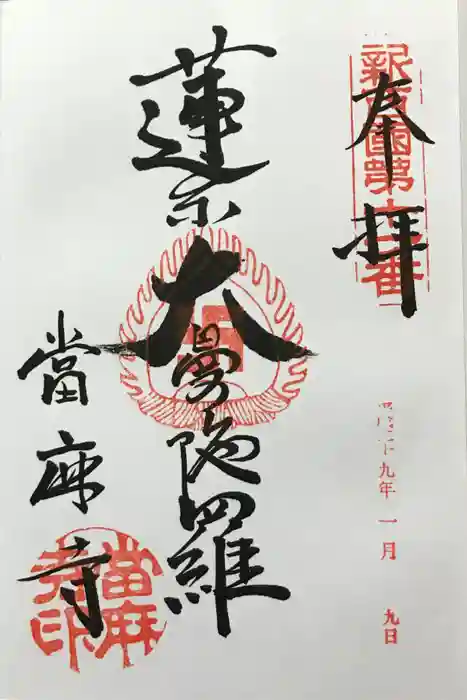 奉拝
新西国第十一番
九年 一月 九日
蓮糸大曼陀羅
當麻寺
當麻寺印